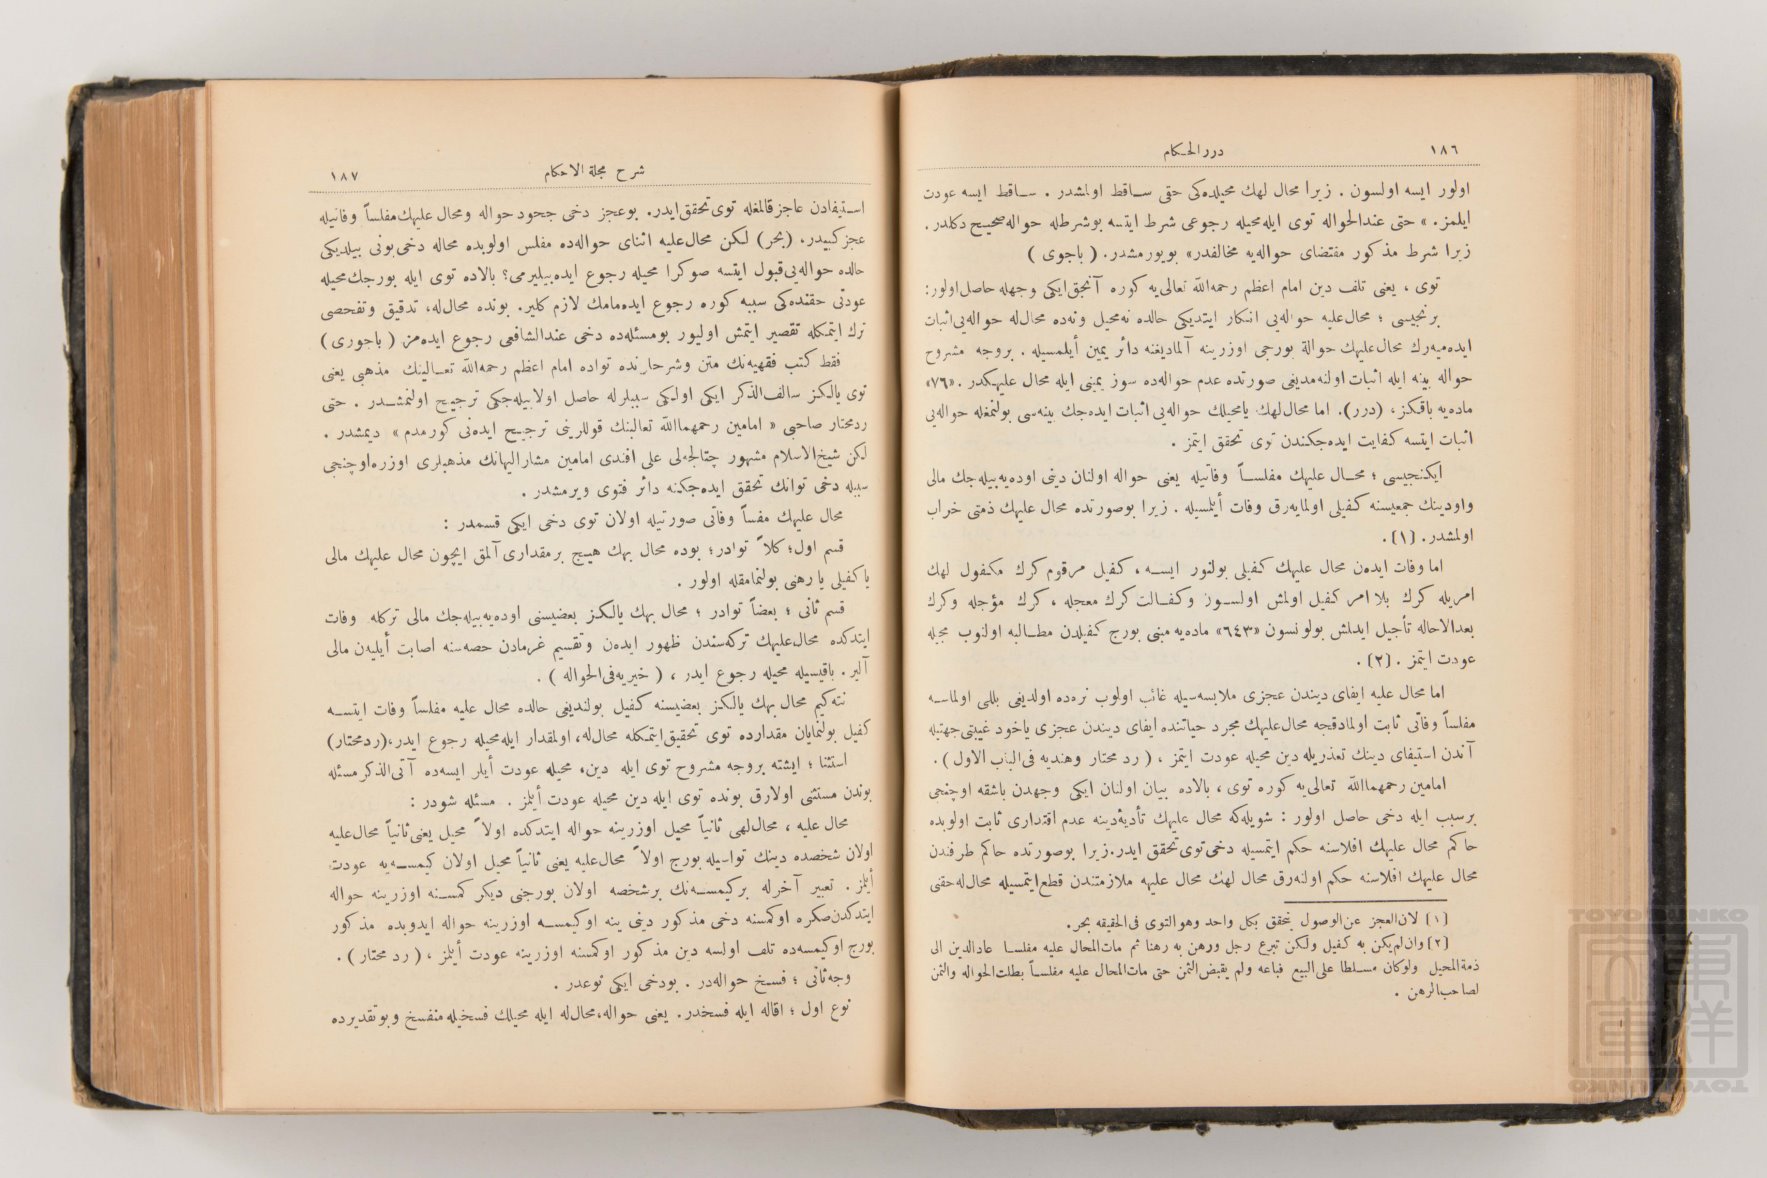 ١٨٦
درر الحكام
اولور ايسه اولسون . زيرا محال لهك محيلده‌كى حتى ساقط اولمشدر . ساقط ايسه عودت
ايلمز. » حتى عندالحواله توى ايله محيله رجوعى شرط ايتسه بوشرطله حواله صحيح دكلدر .
زيرا شرط مذكور مقتضاى حواله‌يه مخالفدر» بويورمشدر. ( باجورى )
توى ، يعنى تلف دين امام اعظم رحمه‌الله تعالى‌يه كوره آنجق ايكى وجهله حاصل اولور:
برنجيسى ؛ محال‌عليه حواله‌يى انكار ايتديكى حالده نه‌محيل ونه‌ده محال‌له حواله‌يى اثبات
ايده‌ميه‌رك محال‌عليهك حوالة بورجى اوزرينه آلماديغنه دائر يمين أيلمسيله . بروجه مشروح
حواله بينه ايله اثبات اولنه‌مديغى صورتده عدم حواله‌ده سوز يمينى ايله محال عليهكدر . «٧٦»
ماده‌يه باقكز ، (درر). اما محال‌لهك يامحيلك حواله‌يى اثبات ايده‌جك بينه‌سى بولنمغله حواله‌يى
اثبات ايتسه كفايت ايده‌جكندن توى تحقق ايتمز .
ايكنجيسى ؛ محال عليهك مفلساً وفاتيله يعنى حواله اولنان دينى اوده‌يه‌بيله‌جك مالى
واودينك جمعيسنه كفيلى اولمايه‌رق وفات أيلمسيله . زيرا بوصورتده محال عليهك ذمتى خراب
اولمشدر. [١] .
اما وفات ايده‌ن محال عليهك كفيلى بولنور ايسه ، كفيل مرقوم كرك مكفول لهك
امريله كرك بلا امر كفيل اولمش اولسون وكفالت كرك معجله ، كرك مؤجله وكرك
بعدالاحاله تأجيل ايدلمش بولونسون «٦٤٣» ماده‌يه مبنى بورج كفيلدن مطالبه اولنوب محيله
عودت ايتمز . [٢] .
اما محال عليه ايفاى ديندن عجزى ملابسه‌سيله غائب اولوب نره‌ده اولديغى بللى اولماسه
مفلساً وفاتى ثابت اولمادقجه محال‌عليهك مجرد حياتنده ايفاى ديندن عجزى ياخود غيبتى جهتيله
آندن استيفاى دينك تعذريله دين محيله عودت ايتمز ، ( رد محتار وهنديه فى‌الباب الاول ) .
امامين رحمهماالله تعالى‌يه كوره توى ، بالاده بيان اولنان ايكى وجهدن باشقه اوچنجى
برسبب ايله دخى حاصل اولور : شويله‌كه محال عليهك تأديهٔ‌دينه عدم اقتدارى ثابت اولوبده
حاكم محال عليهك افلاسنه حكم ايتمسيله دخى توى تحقق ايدر. زيرا بوصورتده حاكم طرفندن
محال عليهك افلاسنه حكم اولنه‌رق محال لهك محال عليهه ملازمتندن قطع ايتمسيله محال‌له حقنى
[١] لان‌العجز عن‌الوصول يتحقق بكل واحد وهو التوى فى‌الحقيقه بحر.
[٢] وان لم يكن به كفيل ولكن تبرع رجل ورهن به رهنا ثم مات‌المحال عليه مفلسا عادالدين الى
ذمة‌المحيل ولوكان مسلطا على‌البيع فباعه ولم يقبض‌الثمن حتى مات‌المحال عليه مفلساً بطلت‌الحواله والثمن
لصاحب‌الرهن .
شرح مجلة الاحكام
١٨٧
استيفادن عاجز قالمغله توى تحقق ايدر. بوعجز دخى جحود حواله ومحال عليهك مفلساً وفاتيله
عجز كبيدر، (بحر) لكن محال‌عليه اثناى حواله‌ده مفلس اولوبده محاله دخى بونى بيلديكى
حالده حواله‌يى قبول ايتسه صوكرا محيله رجوع ايده‌بيليرمى؟ بالاده توى ايله بورجك محيله
عودتى حقنده‌كى سببه كوره رجوع ايده‌مامك لازم كلير. بونده محال‌له، تدقيق وتفحصى
ترك ايتمكله تقصير ايتمش اوليور بومسئله‌ده دخى عندالشافعى رجوع ايده‌مز ( باجورى )
فقط كتب فقهيه‌نك متن وشرحارنده تواده امام اعظم رحمه‌الله تعالينك مذهبى يعنى
توى يالكز سالف‌الذكر ايكى اولكى سببلرله حاصل اولابيله‌جكى ترجيح اولنمشدر . حتى
ردمحتار صاحبى « امامين رحمهماالله تعالينك قوللرينى ترجيح ايده‌نى كورمدم » ديمشدر .
لكن شيخ‌الاسلام مشهور چتالجه‌لى على افندى امامين مشاراليهمانك مذهبلرى اوزره‌اوچنجى
سببله دخى توانك تحقق ايده‌جكنه دائر فتوى ويرمشدر .
محال عليهك مفساً وفاتى صورتيله اولان توى دخى ايكى قسمدر :
قسم اول؛ كلاً توادر؛ بوده محال بهك هيچ برمقدارى آلمق ايچون محال عليهك مالى
ياكفيلى يا رهنى بولنمامقله اولور .
قسم ثانى ؛ بعضاً توادر ؛ محال بهك يالكز بعضيسنى اوده‌يه‌بيله‌جك مالى تركله وفات
ايتدكده محال‌عليهك تركه‌سندن ظهور ايده‌ن وتقسيم غرمادن حصه‌سنه اصابت أيليه‌ن مالى
آلير. باقيسيله محيله رجوع ايدر ، ( خيريه‌فى‌الحواله ) .
نته‌كيم محال بهك يالكز بعضيسنه كفيل بولنديغى حالده محال عليه مفلساً وفات ايتسه
كفيل بولنمايان مقدارده توى تحقيق ايتمكله محال‌له، اولمقدار ايله محيله رجوع ايدر،(ردمحتار)
استثنا ؛ ايشته بروجه مشروح توى ايله دين، محيله عودت أيلر ايسه‌ده آتى‌الذكر مسئله
بوندن مستثنى اولارق بونده توى ايله دين محيله عودت أيلمز . مسئله شودر :
محال عليه ، محال‌لهى ثانياً محيل اوزرينه حواله ايتدكده اولاً محيل يعنى ثانياً محال‌عليه
اولان شخصده دينك تواسيله بورج اولاً محال‌عليه يعنى ثانياً محيل اولان كيمسه‌يه عودت
أيلمز . تعبير آخرله بركيمسه‌نك برشخصه اولان بورجنى ديكر كمسنه اوزرينه حواله
ايتدكدن صكره اوكمسنه دخى مذكور دينى ينه اوكيمسه اوزرينه حواله ايدوبده مذكور
بورج اوكيمسه‌ده تلف اولسه دين مذكور اوكمسنه اوزرينه عودت أيلمز ، ( رد محتار ) .
وجه‌ثانى ؛ فسخ حواله‌در . بودخى ايكى نوعدر .
نوع اول ؛ اقاله ايله فسخدر. يعنى حواله،محال‌له ايله محيلك فسخيله منفسخ وبوتقديرده
TOYO BUNKO
東洋文庫
TOYO BUNKO